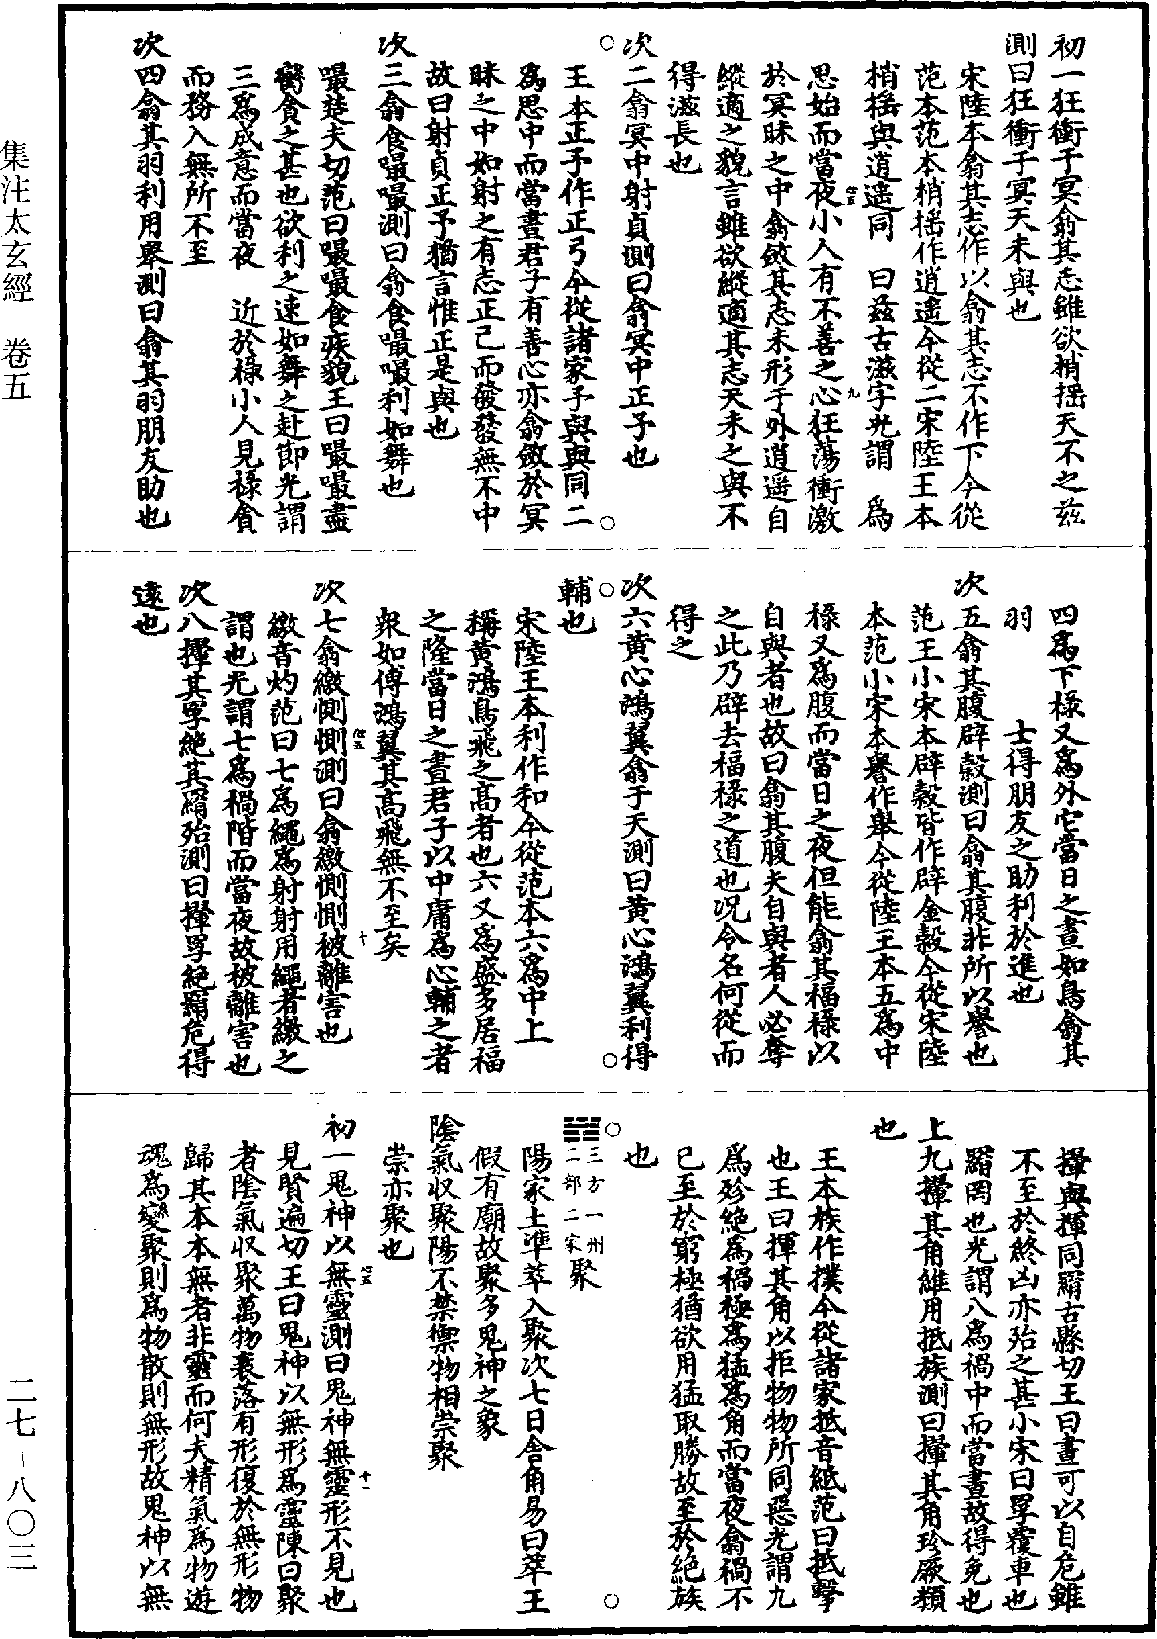 初一狂衝于冥翕其志雖欲梢搖天不之茲
測曰狂衝于冥天未與也
宋陸本翕其志作以翕其志不作下今從
范本范本梢搖作逍遥今從二宋陸王本
梢搖與逍遥同 曰茲古滋字光謂 為
思始而當夜小人有不善之心狂蕩衝激
於冥昧之中翕斂其志未形于外逍遥自
縱適之貌言雖欲縱適其志天未之與不
得滋長也
次二翕冥中射貞測曰翕冥中正予也
王本正予作正弓今從諸家予與與同二
為思中而當晝君子有善心亦翕斂於冥
昧之中如射之有志正己而發發無不中
故曰射貞正予猶言惟正是與也
次三翕食嘬嘬測曰翕食嘬嘬利如舞也
嘬楚夫切范曰嘬嘬食疾貌王曰嘬嘬盡
臠食之甚也欲利之速如舞之赴節光謂
三為成意而當夜 近於祿小人見祿貪
而務入無所不至
次四翕其羽利用舉測曰翕其羽朋友助也
四為下祿又為外它當日之晝如鳥翕其
羽 士得朋友之助利於進也
次五翕其腹辟穀測曰翕其腹非所以譽也
范王小宋本辟穀皆作辟金穀今從宋陸
本范小宋本譽作舉今從陸王本五為中
祿又為腹而當日之夜但能翕其福祿以
自與者也故曰翕其腹夫自與者人必奪
之此乃辟去福祿之道也况令名何從而
得之
次六黃心鴻翼翕于天測曰黃心鴻翼利得
輔也
宋陸王本利作和今從范本六為中上
稱黃鴻鳥飛之高者也六又為盛多居福
之隆當日之晝君子以中庸為心輔之者
衆如傅鴻翼其高飛無不至矣
次七翕繳惻惻測曰翕繳惻惻被離害也
繳音灼范曰七為繩為射射用繩者繳之
謂也光謂七為禍階而當夜故被離害也
次八擇其罦絕其羂殆測曰擇罦絕羂危得
遠也
擇與揮同羂古縣切王曰晝可以自危雖
不至於終凶亦殆之甚小宋曰罦覆車也
羂罔也光謂八為禍中而當晝故得免也
上九擇其角維用抵族測曰擇其角珍厥類
也
王本族作撲今從諸家抵音紙范曰抵擊
也王曰揮其角以拒物物所同惡光謂九
為殄絕為禍極為猛為角而當夜翕禍不
已至於窮極猶欲用猛取勝故至於絕族
也
三方一州
二部二家聚
陽家土準萃入聚次七日舍角易曰萃王
假有廟故聚多鬼神之象
陰氣收聚陽不禁禦物相崇聚
崇亦聚也
初一鬼神以無靈測曰鬼神無靈形不見也
見賢遍切王曰鬼神以無形為靈陳曰聚
者陰氣收聚萬物衰落有形復於無形物
歸其本本無者非靈而何夫精氣為物遊
魂為變聚則為物散則無形故鬼神以無
集注太玄經 卷五
二七-八〇三